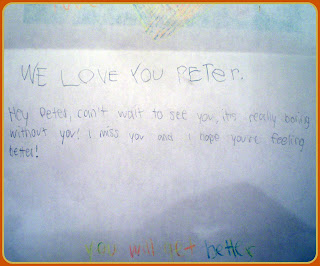 WE LOVE YOU PETER.
Hey Peter, can't wait to see you, it's really boring
without you! I miss you and I hope you're feeling
better!
you will get better